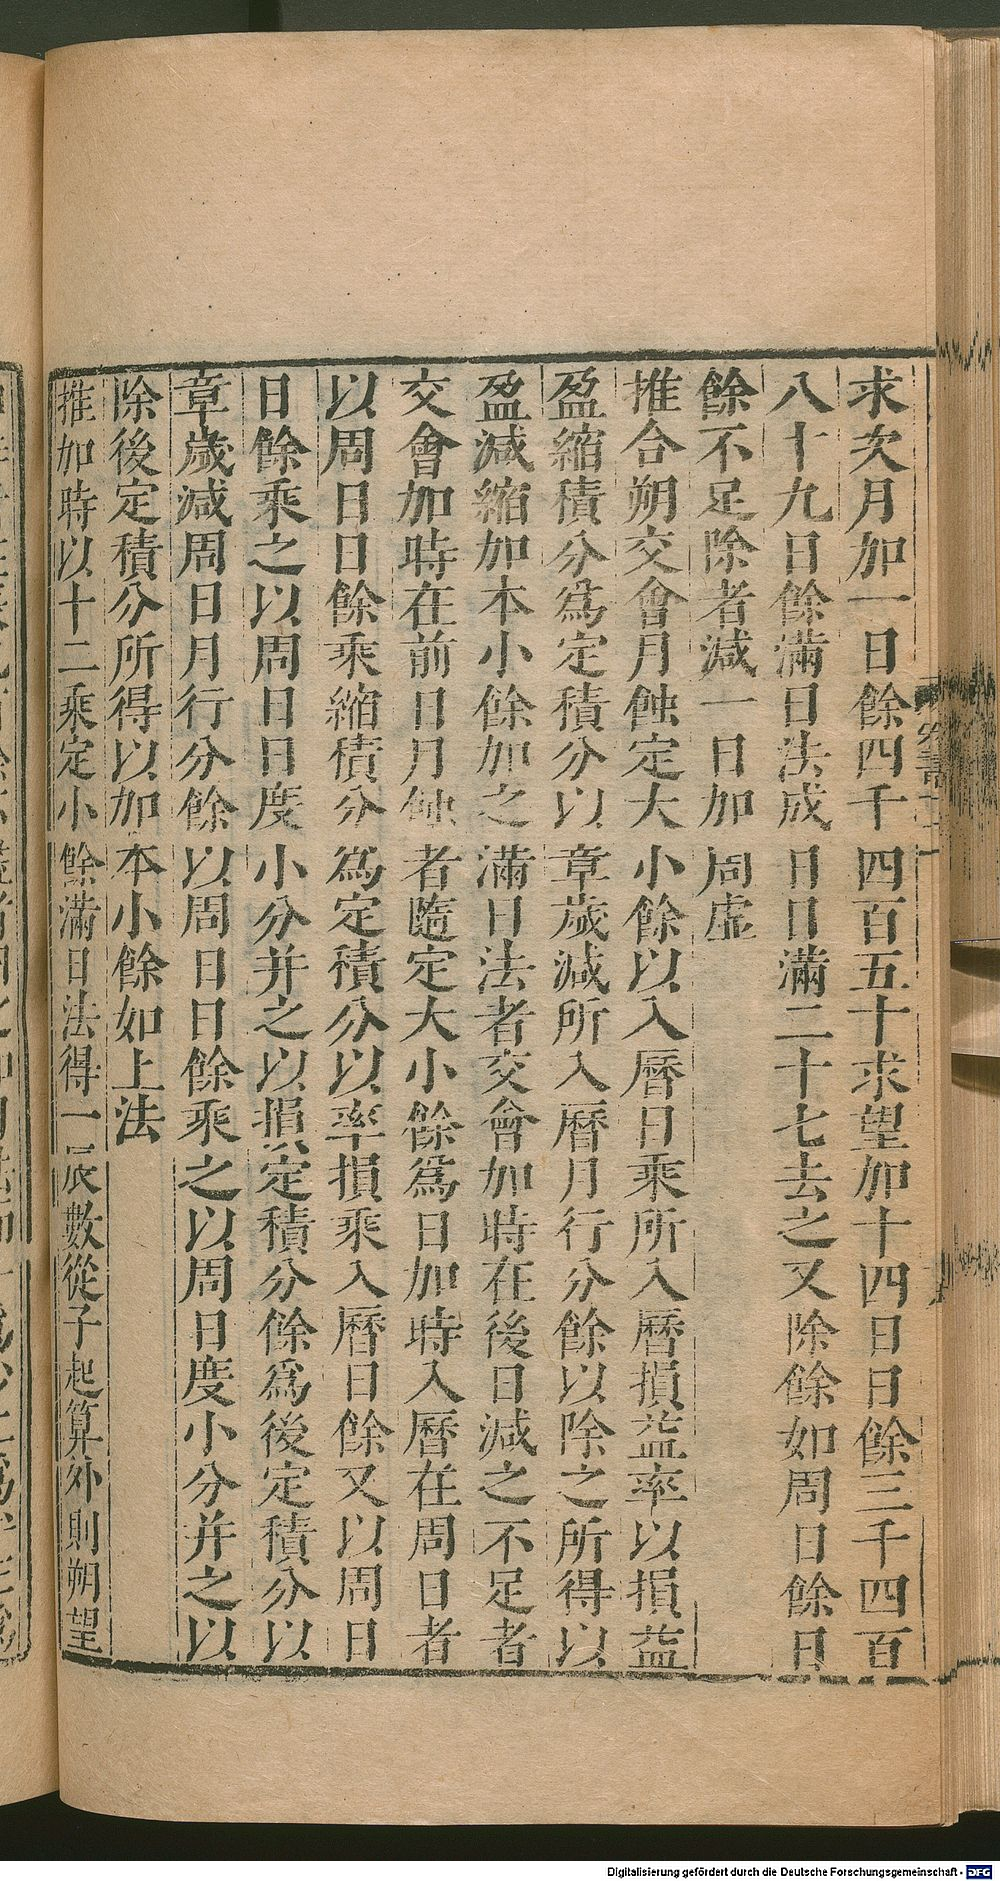 求次月加一日餘四千四百五十求望加十四日日餘三千四百
八十九日餘滿日法成日日滿二十七去之又除餘如周日餘日
餘不足除者減一日加周虛
推合朔交會月蝕定大小餘以入曆日乘所入曆損益率以損益
盈縮積分爲定積分以章歲減所入曆月行分餘以除之所得以
盈減縮加本小餘加之滿日法者交會加時在後日減之不足者
交會加時在前日月蝕者隨定大小餘爲日加時入曆在周日者
以周日日餘乘縮積分爲定積分以率損乘入曆日餘又以周日
日餘乘之以周日日度小分并之以損定積分餘爲後定積分以
章歲減周日月行分餘以周日日餘乘之以周日度小分并之以
除後定積分所得以加本小餘如上法
推加時以十二乘定小餘滿日法得一辰數從子起算外則朔望
Digitalisierung gefördert durch die Deutsche Forschungsgemeinschaft - DFG